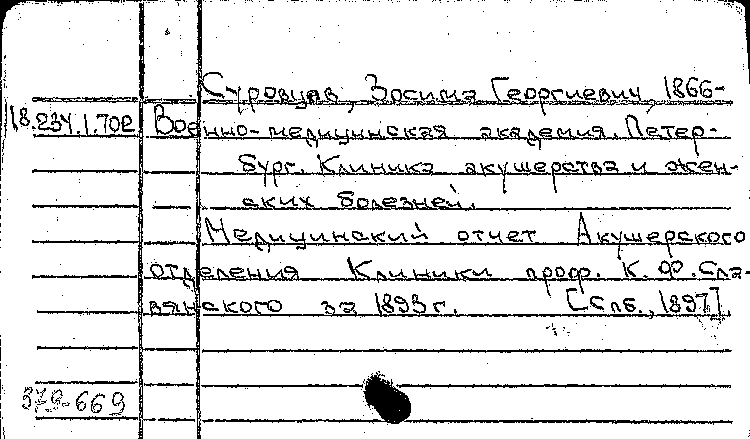 Суровцев, Зосима Георгиевич, 1866-
18.234.1.702 Военно-медицинская академия. Петер-
бург. Клиника акушерства и жен-
ских болезней.
Медицинский отчет Акушерского
отделения Клиники проф. К. Ф. Сла-
вянского за 1893 г. [Спб., 1897].
379-669